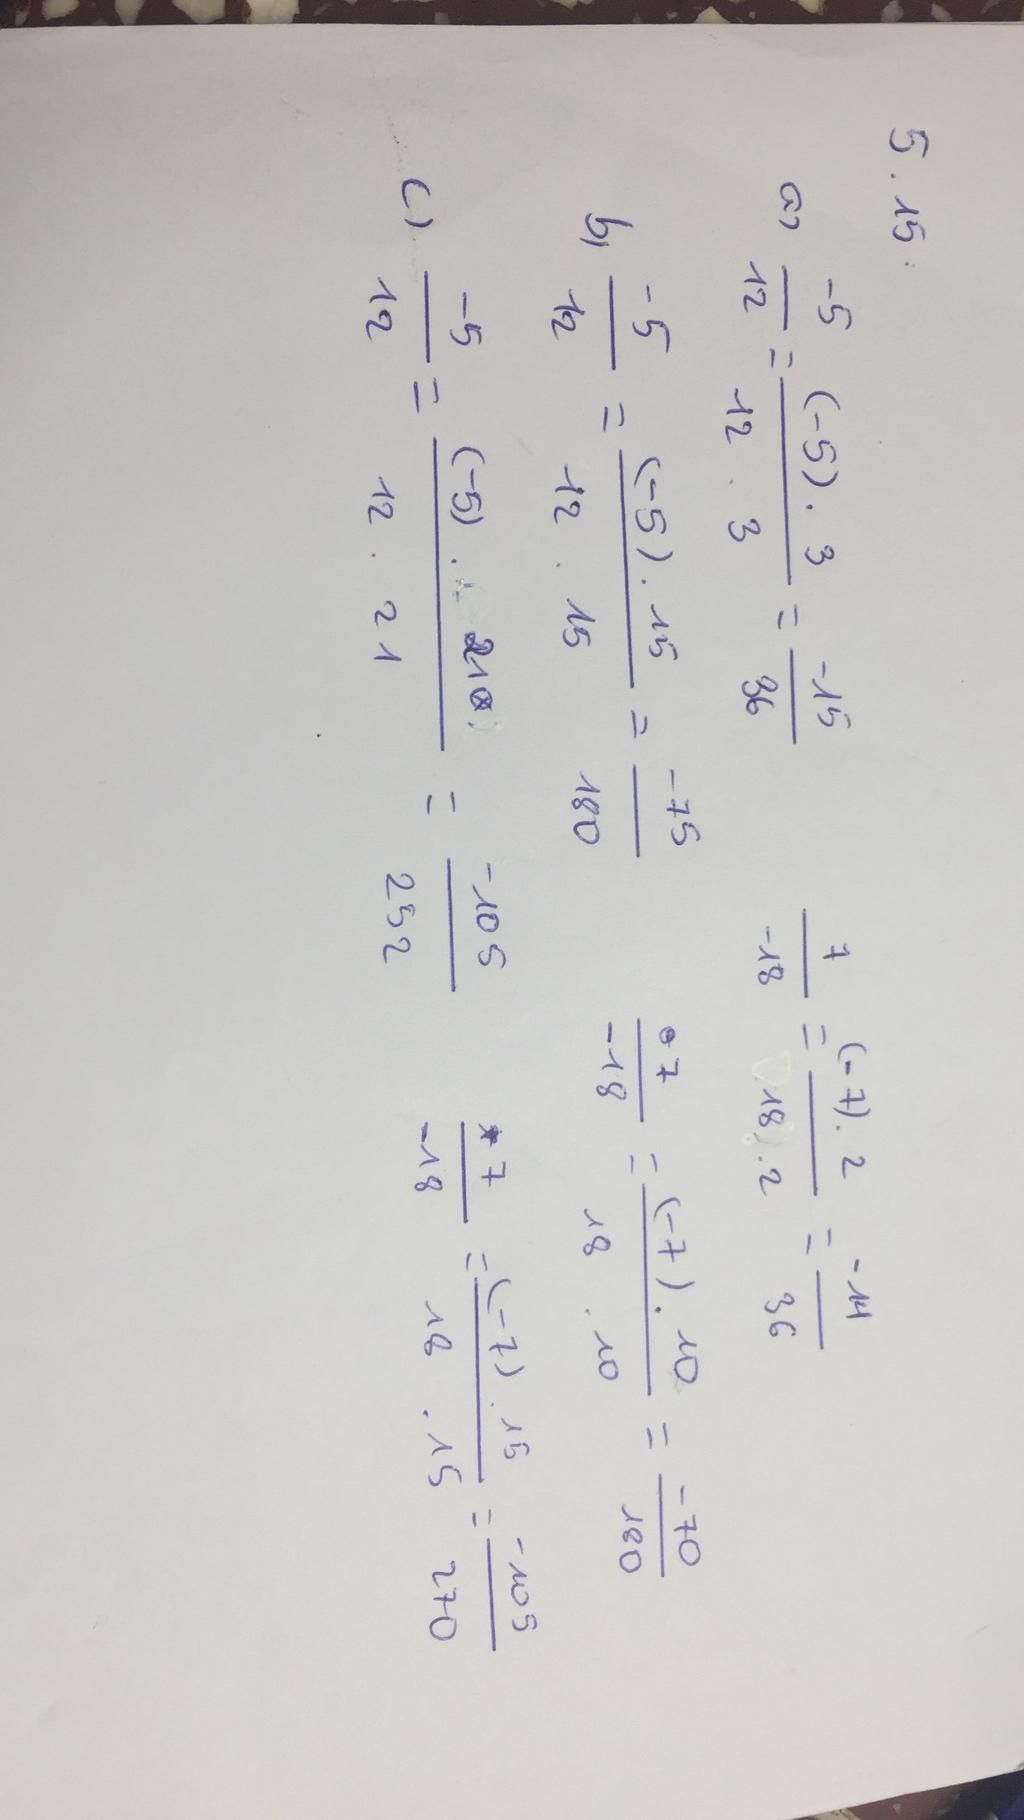 5.15.
a) -5/12 = (-5).3/12.3 = -15/36 7/-18 = (-7).2/18.2 = -14/36
b) -5/12 = (-5).15/12.15 = -75/180 7/-18 = (-7).10/18.10 = -70/180
c) -5/12 = (-5).21/12.21 = -105/252 7/-18 = (-7).15/18.15 = -105/270